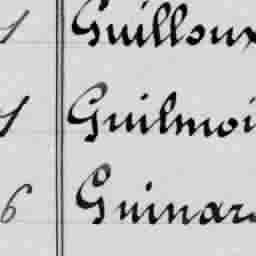 1 Guilloux
1 Guilmoi
6 Guinar